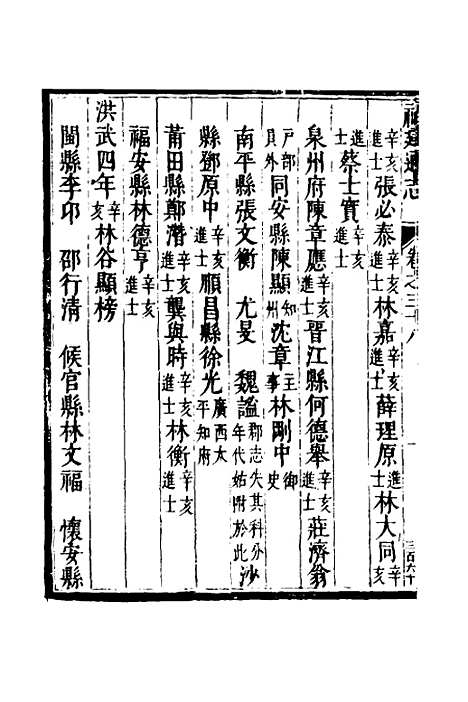 福建通志 卷之三十八 一
辛亥進士張必泰辛亥進士林嘉辛亥進士薛理原進士林大同辛亥
進士蔡士實辛亥進士
泉州府陳章應辛亥進士晉江縣何德舉辛亥進士莊濟翁
戶部員外同安縣陳顯知州沈章主事林剛中御史
南平縣張文衡 尤旻 魏謐郡志失其科分年代姑附於此沙
縣鄧原中辛亥進士順昌縣徐光廣西太平知府
莆田縣鄭潛辛亥進士龔與時辛亥進士林衡辛亥進士
福安縣林德亨辛亥進士
洪武四年辛亥林谷顯榜
閩縣李卭 邵行清 候官縣林文福 懷安縣